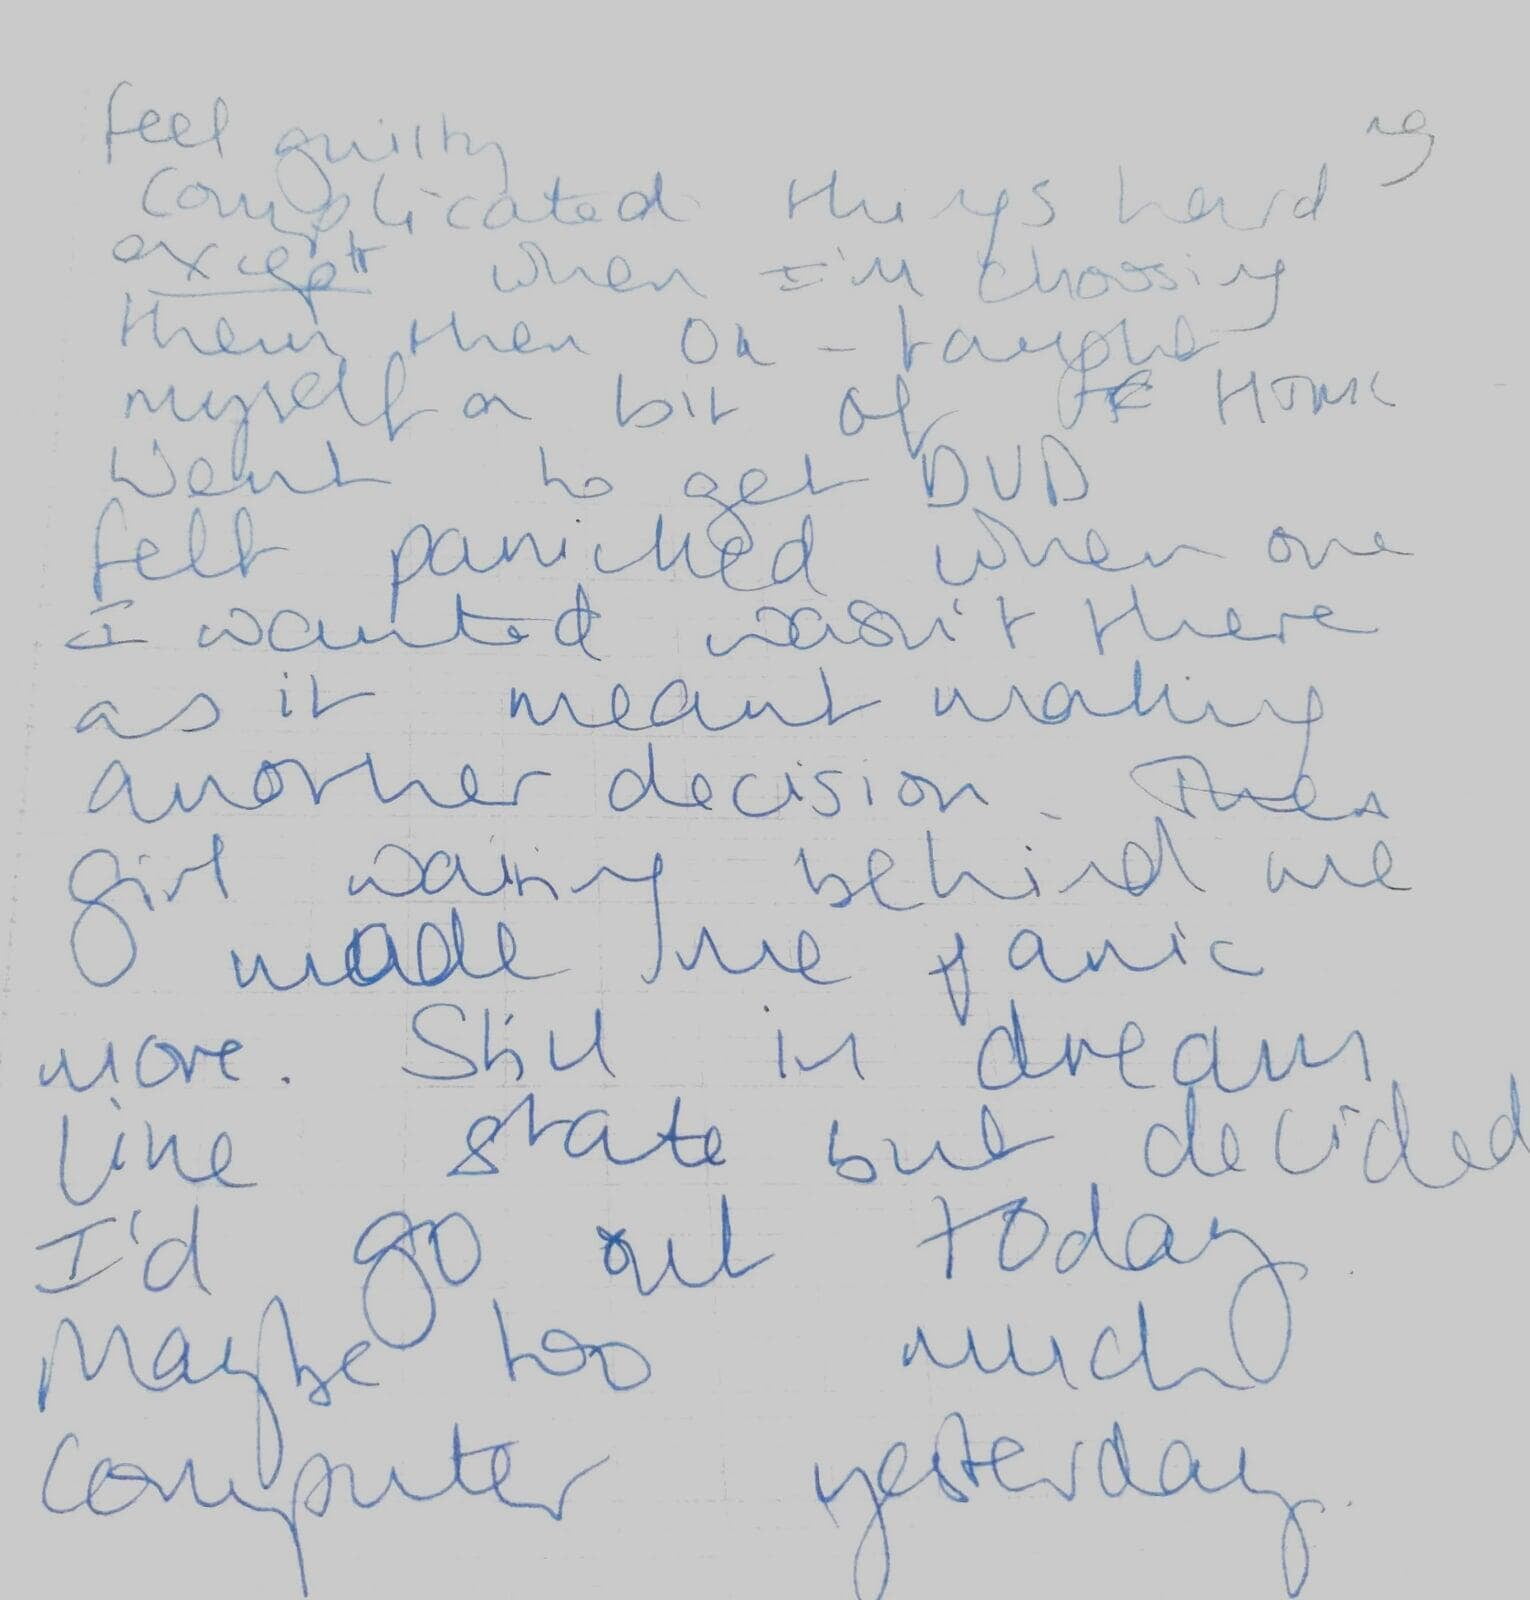 feel guilty
ng
Complicated things hard
except when I'm choosing
them then OK - taught
myself a bit of HTML
Went to get DVD
felt panicked when one
I wanted wasn't there
as it meant making
another decision. Then
girl waiting behind me
made me panic
more. Still in dream
like state but decided
I'd go out today.
Maybe too much
computer yesterday.